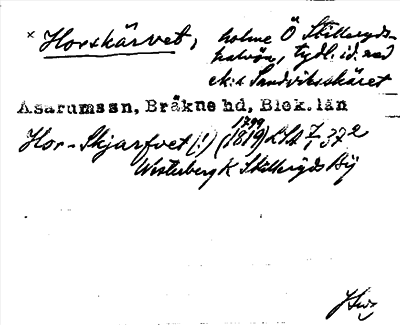 × Horskärvet, holme Ö Stilleryds-
halvön, tydl. id. med
ek:s Sandviksskäret
Asarumssn, Bräkne hd, Blek. län
Hor-Skjarfvet (!) (1819) LSA I 37²
1799
Westerberg K Stilleryds By